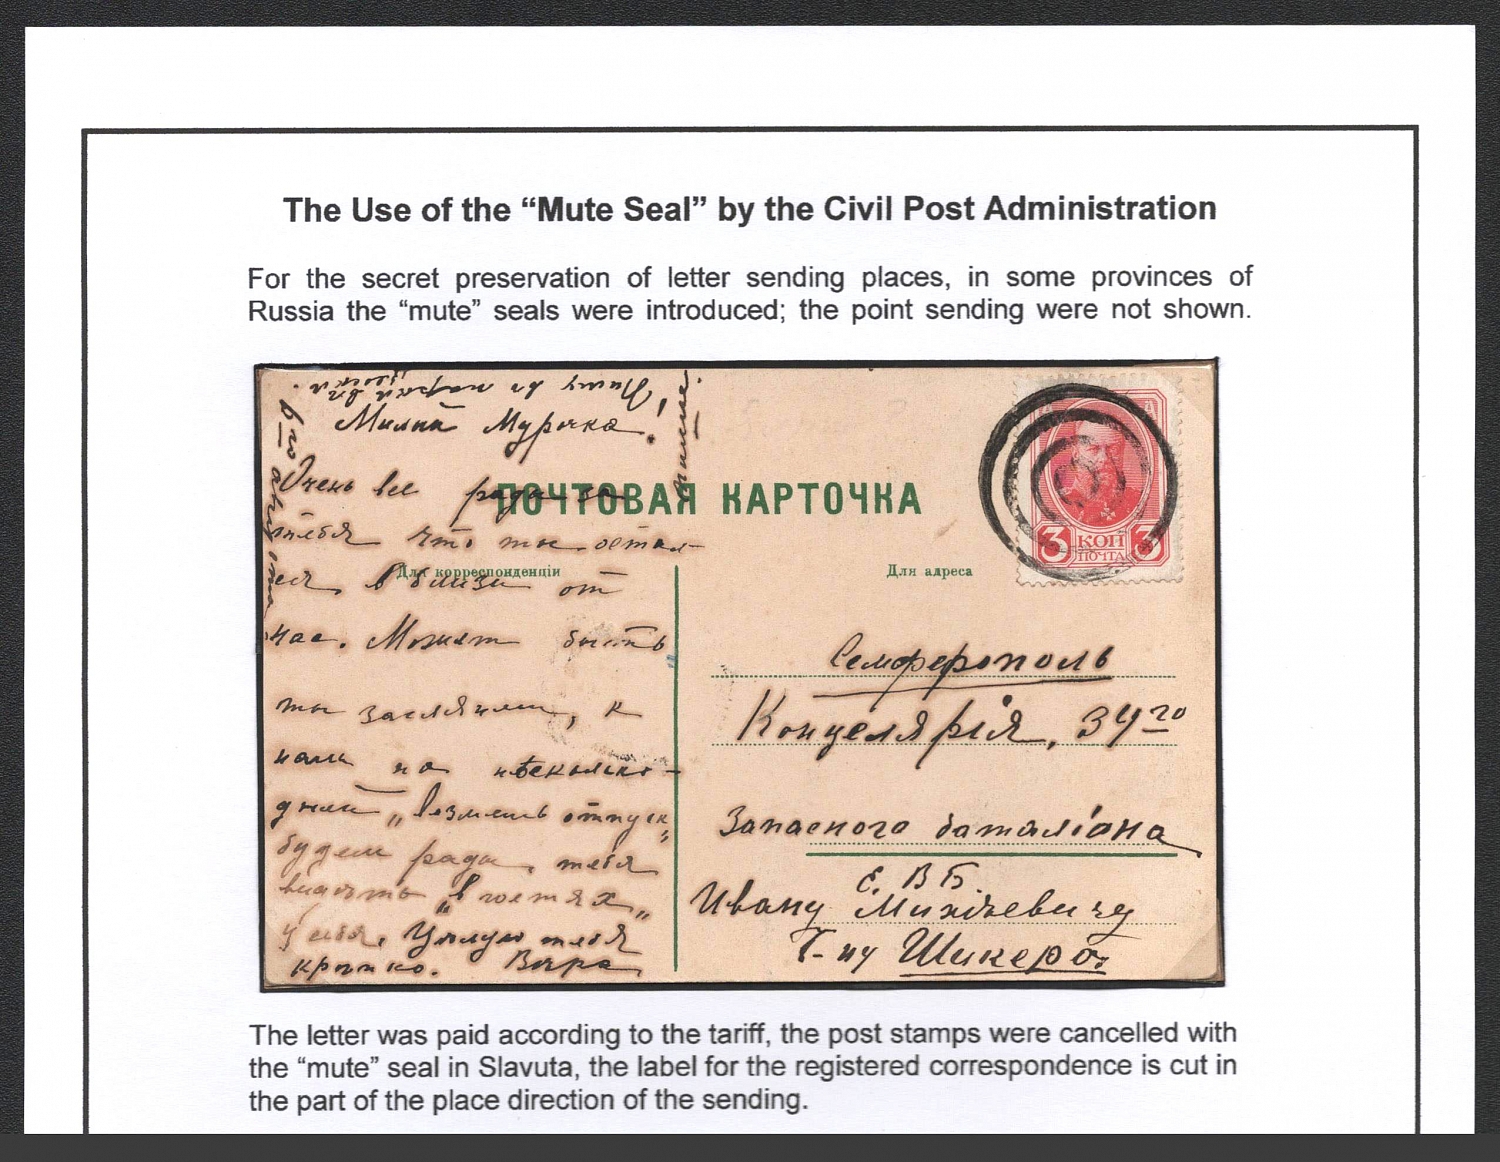 The Use of the “Mute Seal” by the Civil Post Administration
For the secret preservation of letter sending places, in some provinces of
Russia the “mute” seals were introduced; the point sending were not shown.
Пишу
Милый Мурочка!
Очень все рады за
тебя что ты остал
ся вблизи от
нас. Может быть
ты
к
нам на нѣсколько
дней „возмешь отпуск“
будем рады тебя
видѣть „в гостях„
у себя. Цѣлую тебя
крѣпко. Вѣра
ПОЧТОВАЯ КАРТОЧКА
Для корреспонденціи
Для адреса
3 КОП 3
ПОЧТА
Семферополь
Концелярія, 34го
Запасного баталіона
Е. В Б.
Ивану
Г-ну Шикеро
The letter was paid according to the tariff, the post stamps were cancelled with
the “mute” seal in Slavuta, the label for the registered correspondence is cut in
the part of the place direction of the sending.